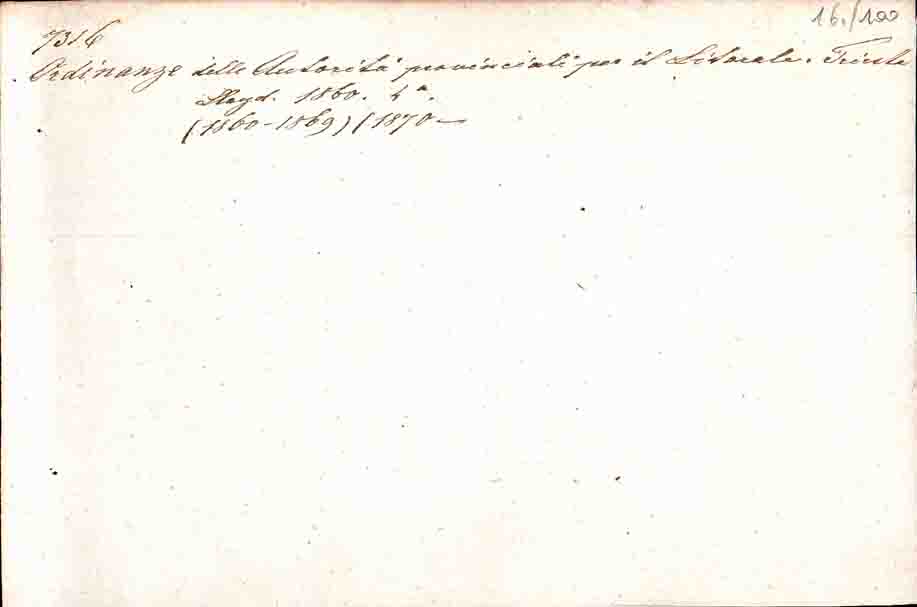 16./100
7316
Ordinanze delle Autorità provinciali per il Litorale. Trieste
Lloyd. 1860. 4°.
(1860-1869) (1870—